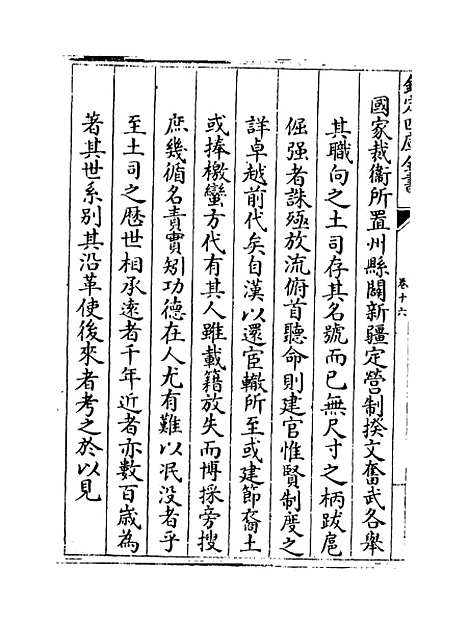 欽定四庫全書
卷十六
國家裁衞所置州縣闢新疆定營制揆文奮武各舉
其職向之土司存其名號而已無尺寸之柄跋扈
倔强者誅殛放流俯首聽命則建官惟賢制度之
詳卓越前代矣自漢以還宦轍所至或建節裔土
或捧檄蠻方代有其人雖載籍放失而博採旁搜
庶幾循名責實矧功德在人尤有難以泯没者乎
至土司之歴世相承逺者千年近者亦數百歳為
著其世系别其沿革使後來者考之於以見